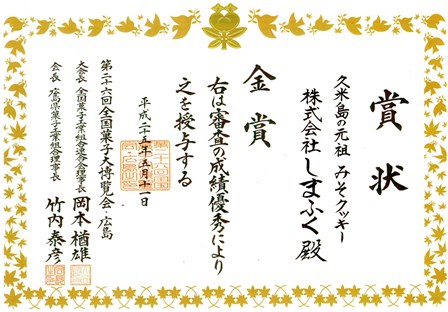 賞状
久米島の元祖 みそクッキー
株式会社 しまふく 殿
金賞
右は審査の成績優秀により
之を授与する
平成二十五年五月十一日
第二十六回全国菓子大博覧会・広島
大会長 全国菓子工業組合連合会理事長 岡本楢雄
会長 広島県菓子工業組合理事長 竹内泰彦